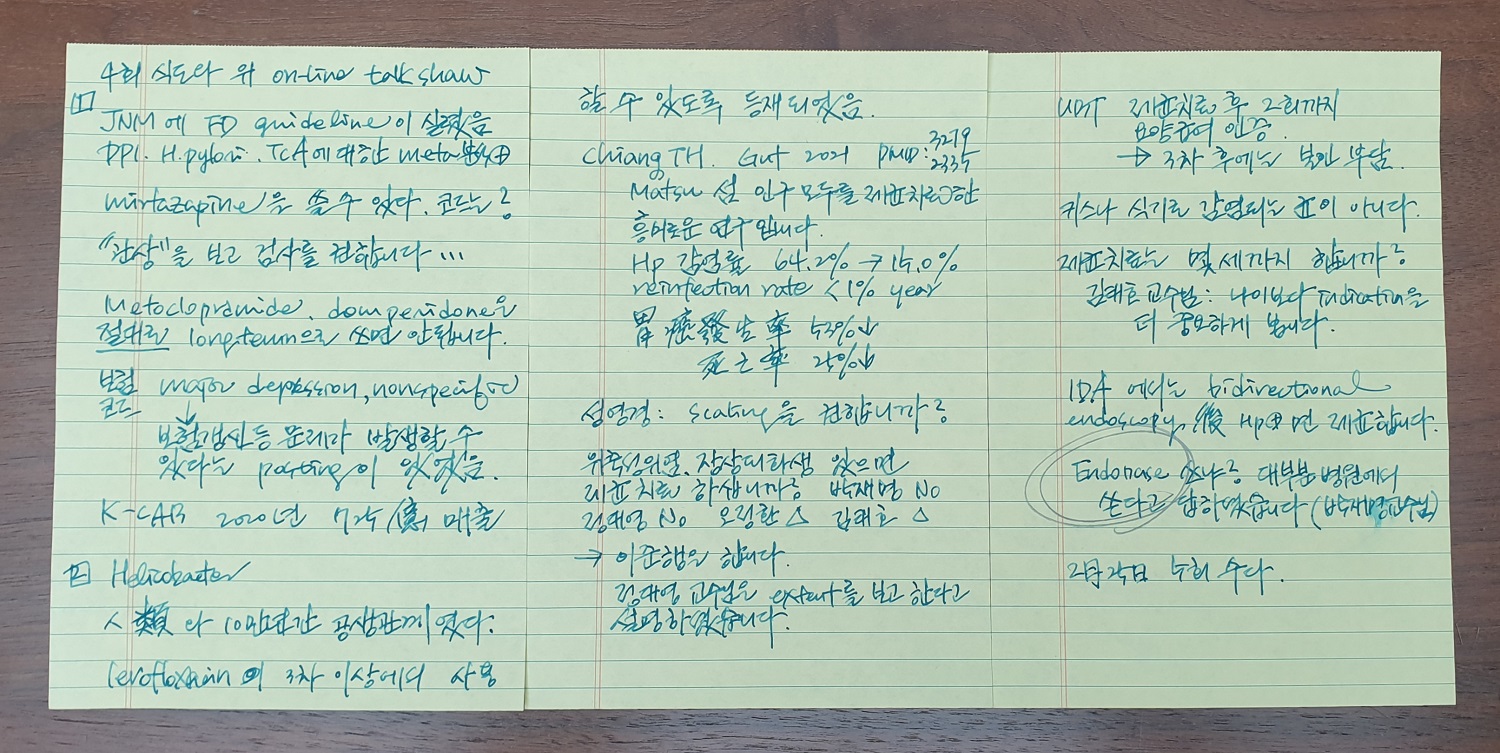 4회 식도와 위 on-line talk show
1
JNM에 FD guideline이 실렸음
PPI. H.pylori. TCA에 대한 meta분석 ⊕
mirtazapine을 쓸 수 있다. 코드는?
"관상"을 보고 검사를 권합니다...
Metoclopramide. domperidone을
절대로 long-term으로 쓰면 안됩니다.
보험코드 major depression, nonspecific
↓
보험갱신 등 문제가 발생할 수
있다는 posting이 있었음.
K-CAB 2020년 72억 매출
2 Helicobacter
人類와 10만년간 공생관계였다.
levofloxacin의 3차 이상에서 사용
할 수 있도록 등재되었음.
Chiang TH. Gut 2021 PMID: 3219
2335
Matsu 섬 인구 모두를 제균치료한
흥미로운 연구입니다.
Hp 감염률 64.2% → 15.0%
reinfection rate <1% year
胃癌發生率 53%↓
死亡率 25%↓
성인경: 을 권합니까?
위축성위염, 장상피화생 있으면
제균치료 하십니까? 박재명 No
정대영 No 오정환 △ 김태호 △
→ 이준행은 합니다.
정대영 교수님은 extent를 보고 한다고
설명하였습니다.
UBT 제균치료 후 2회까지
요양급여 인증.
→ 3차 후에는 본인 부담.
키스나 식기로 감염되는 균이 아니다.
제균치료는 몇 세까지 합니까?
김태호 교수님: 나이보다 indication을
더 중요하게 봅니다.
IDA 에서는 bidirectional
endoscopy 後 Hp⊕면 제균합니다.
Endonase 쓰나? 대부분 병원에서
쓴다고 답하였습니다 (박재명교수님)
2월 24일 5회 수다.